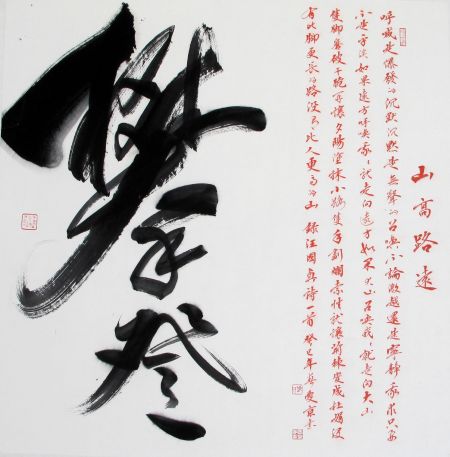 山高路遠
呼喊是爆發的沉默沉默是無聲的召喚不論激越還是寧靜我求只要
不是平淡如果遠方呼喚我我就走向遠方如果大山召喚我就走向大山
隻脚磨破干脆再讓夕陽塗抹小路隻手劃爛索性就讓荊棘變成杜鵑没
有比脚更長的路没有比人更高的山 錄汪國真詩一首 癸巳年
攀登